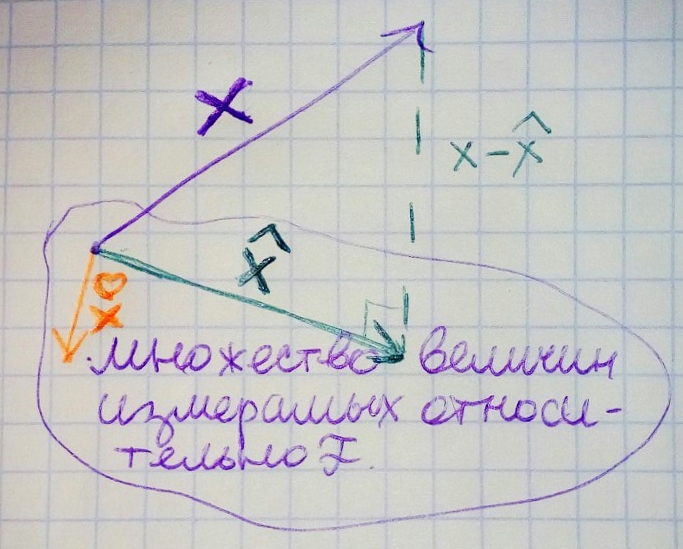 x
x - x̂
x̂
x̊
множество величин
измерамых относи-
тельно F.